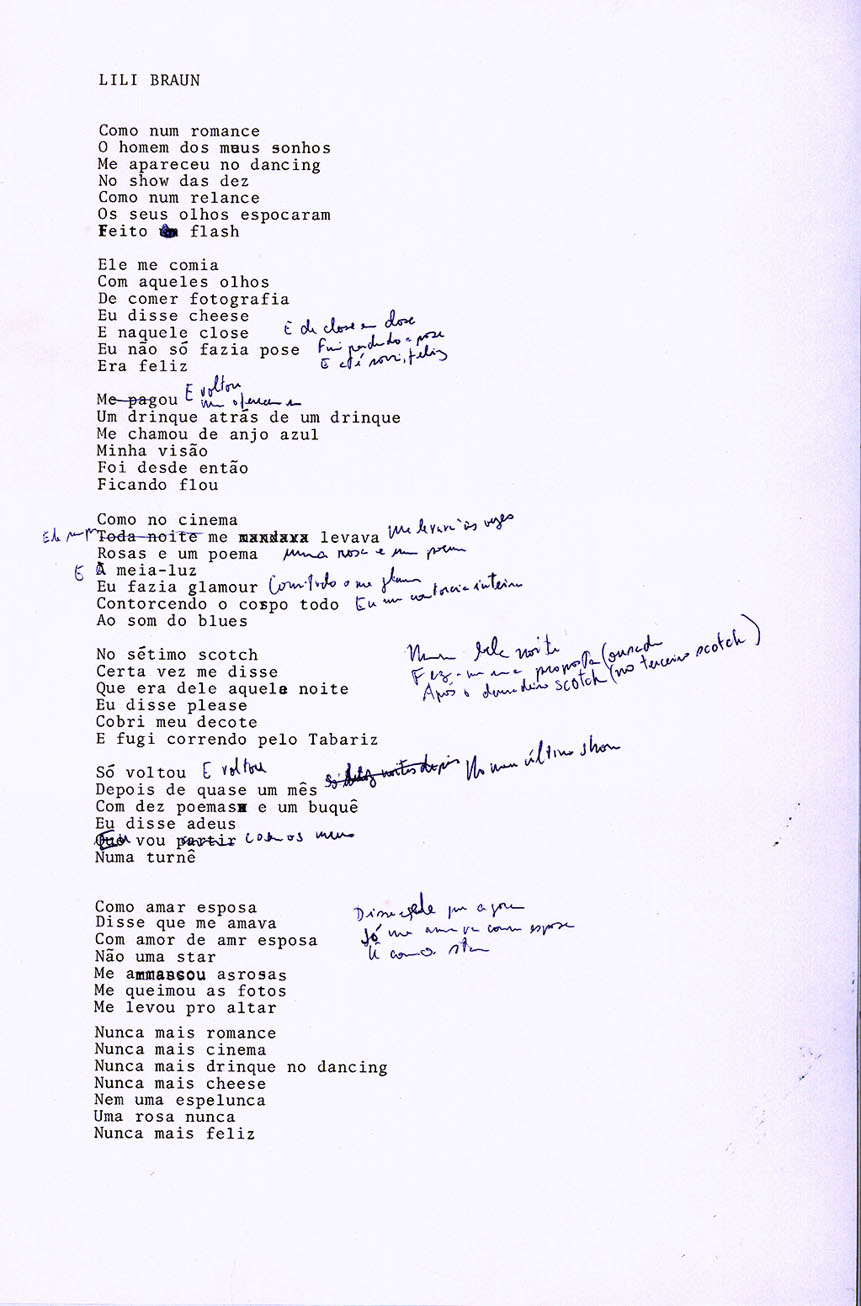 LILI BRAUN
Como num romance
O homem dos meus sonhos
Me apareceu no dancing
No show das dez
Como num relance
Os seus olhos espocaram
Feito flash
Ele me comia
Com aqueles olhos
De comer fotografia
Eu disse cheese
E naquele close E de close em close
Eu não só fazia pose Fui perdendo a pose
Era feliz E até sorri, feliz
Me pagou E voltou
me ofereceu
Um drinque atrás de um drinque
Me chamou de anjo azul
Minha visão
Foi desde então
Ficando flou
Como no cinema
Toda noite me mandava levava Me levava às vezes
Rosas e um poema uma rosa e um poema
E A meia-luz
Eu fazia glamour
Contorcendo o cospo todo Eu me contorcia inteira
Ao som do blues
No sétimo scotch Numa bela noite
Certa vez me disse Fez-me uma proposta (ousada
Que era dele aquela noite Após o scotch (no terceiro scotch)
Eu disse please
Cobri meu decote
E fugi correndo pelo Tabariz
Só voltou E voltou
Depois de quase um mês noites depois No meu último show
Com dez poemas e um buquê
Eu disse adeus
Eu vou partir com os meus
Numa turnê
Como amar esposa Disse ele que agora
Disse que me amava Só me amava como esposa
Com amor de amr esposa Não como star
Não uma star
Me ammassou asrosas
Me queimou as fotos
Me levou pro altar
Nunca mais romance
Nunca mais cinema
Nunca mais drinque no dancing
Nunca mais cheese
Nem uma espelunca
Uma rosa nunca
Nunca mais feliz